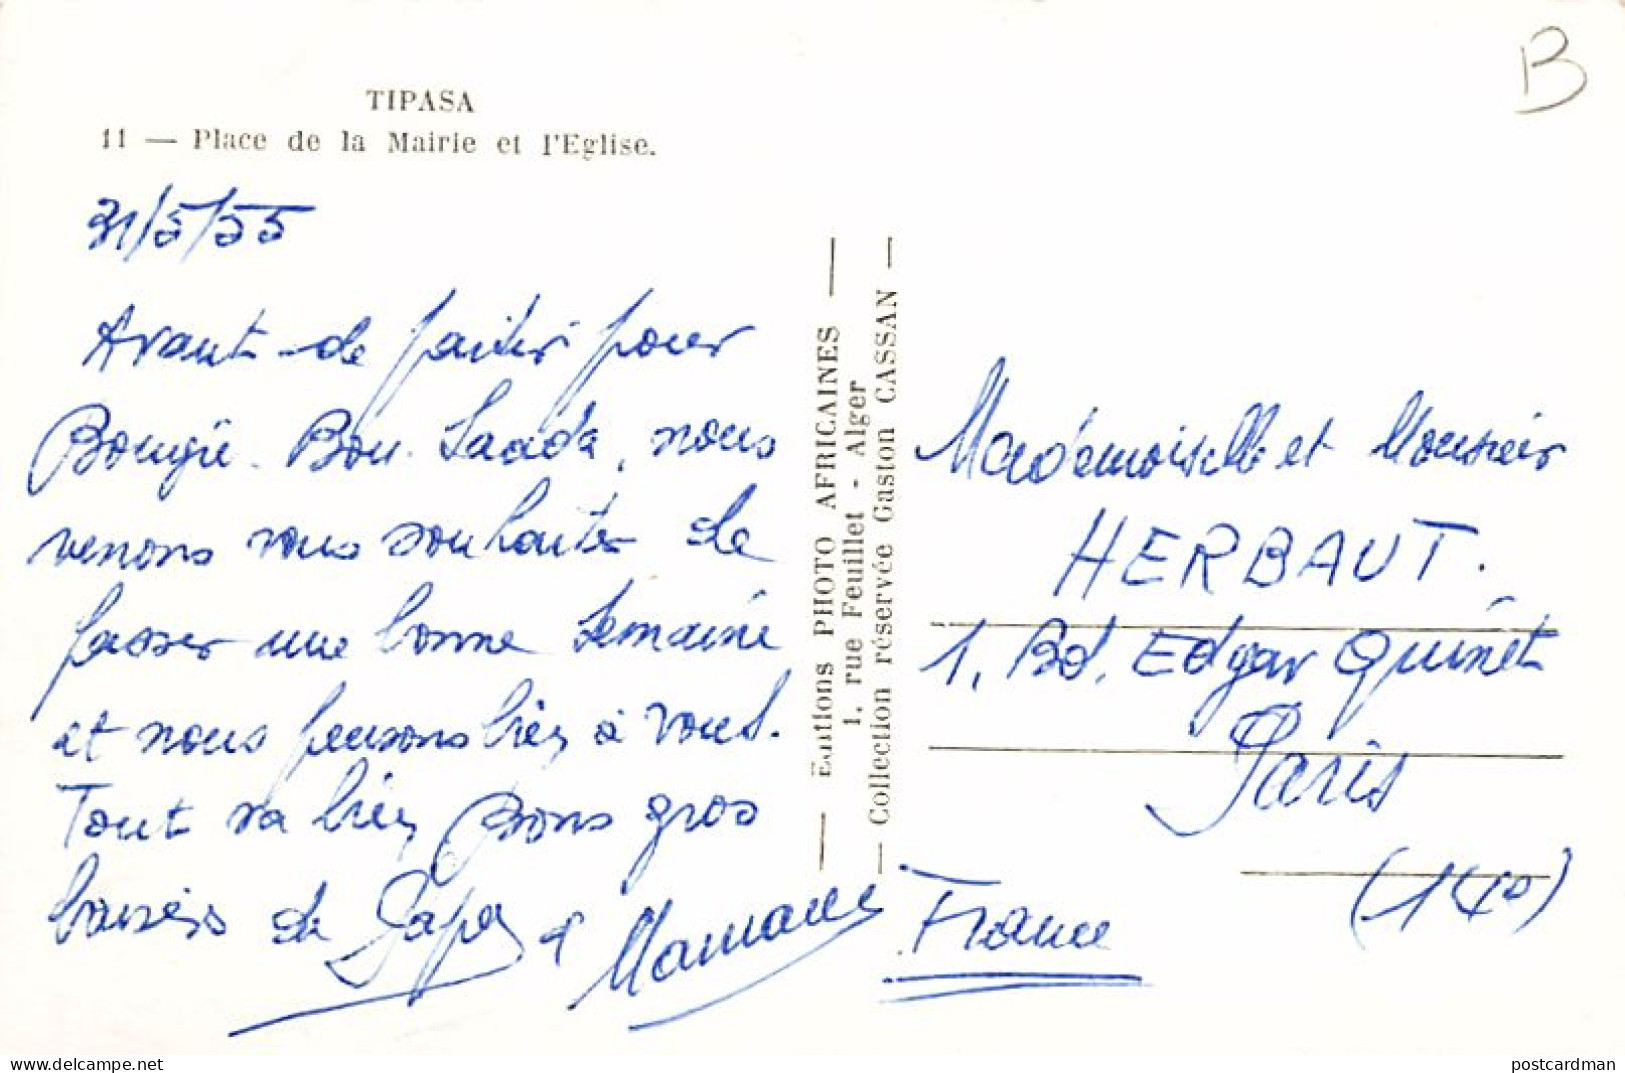 B
TIPASA
11 — Place de la Mairie et l'Eglise.
31/5/55
Avant de partir pour
Bougie. Bou. Saada, nous
venons vous souhaiter de
passer une bonne semaine
et nous pensons bien à vous.
Tout va bien Bons gros
baisers de Papa et Maman
Editions PHOTO AFRICAINES
1, rue Feuillet - Alger
Collection réservée Gaston CASSAN
Mademoiselle et Monsieur
HERBAUT.
1, Bd. Edgar Quinet
Paris
(14e)
France
www.delcampe.net
postcardman